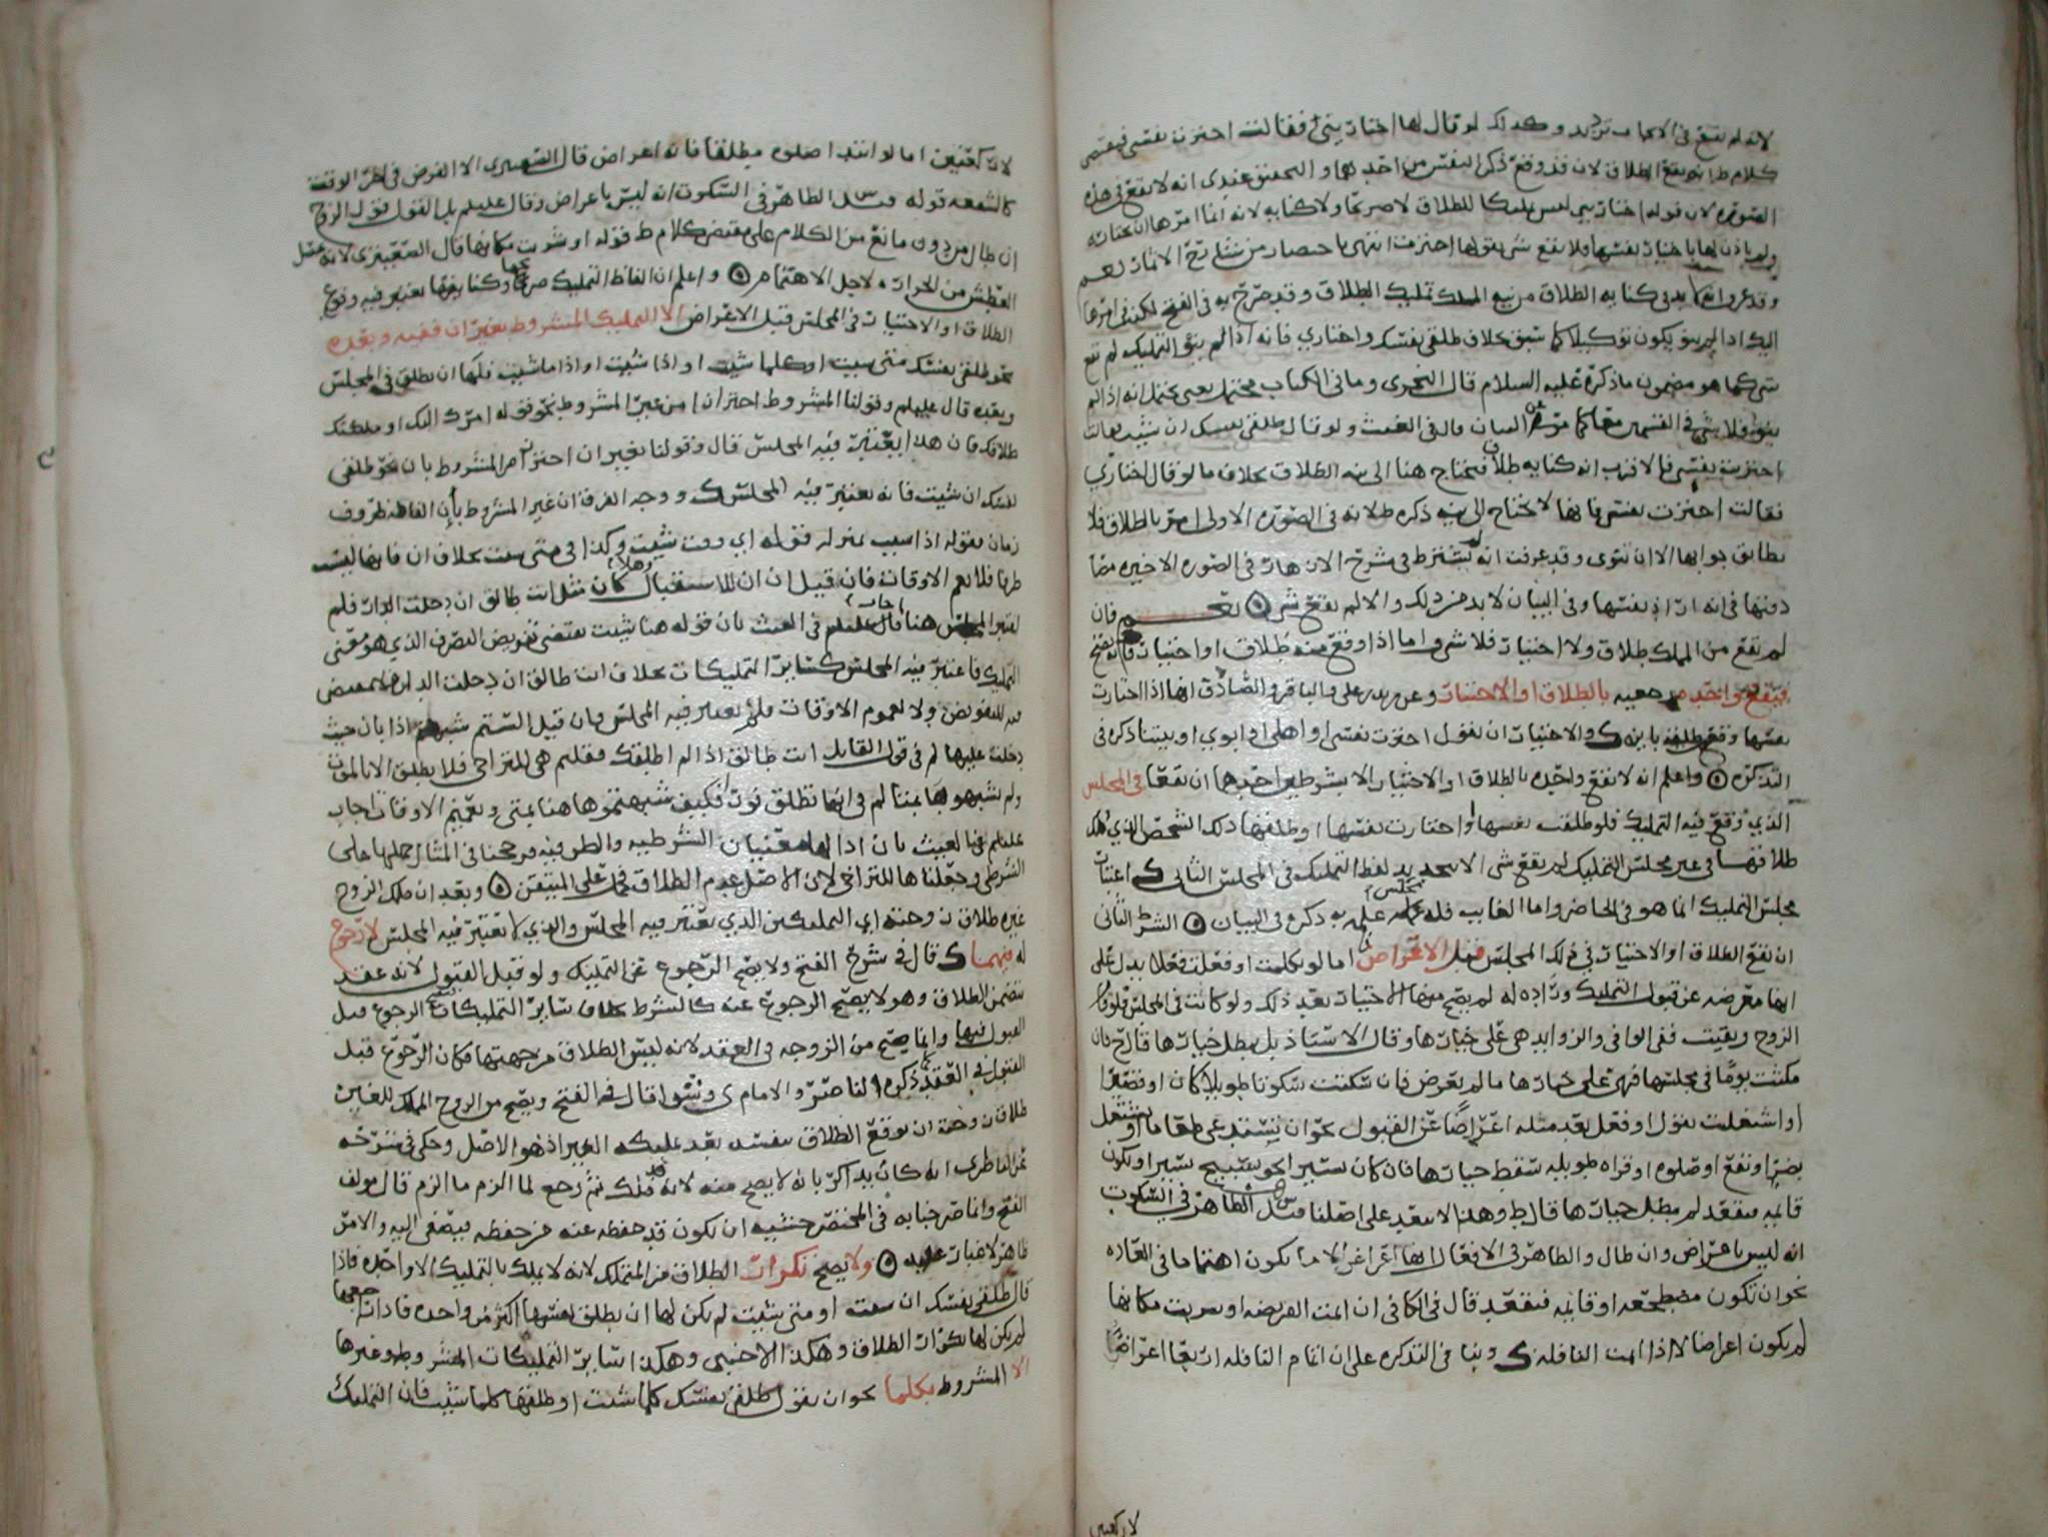 لانه لم يقع في الايجاب تردد وكذلك لو قال لها اختاريني فقالت اخترت نفسي فمقتضى
كلام ط انه يقع الطلاق لان قد وقع ذكر النفس من احدهما والتحقيق عندي انه لا يقع في هذه
الصورة لان قوله اختاريني ليس تمليكا للطلاق لا صريحا ولا كناية لانه انما امرها ان تختاره
ولم ياذن لها باختيار نفسها فلا يقع شي بقولها اخترت انتهى باختصار من شارح الاثمار نعم
وقد عرف انها يدني كناية الطلاق من تبع الملك تمليك الطلاق وقد صرح به في الفتح لكن في امرها
اليك اذا لم ينو يكون توكيلا كما سبق بخلاف طلقي نفسك واختاري فانه اذا لم ينو التمليك لم يقع
شي كما هو مضمون ما ذكره عليه السلام قال النجري وما في الكتاب محتمل يعني يحتمل انه اذا لم
ينو فلا شي في القسمين معا كما مر عن البيان قال في الغيث ولو قال طلقي نفسك ان شيت فقالت
اخترت نفسي فالاقرب انه كناية طلاق فتحتاج هنا الى نية الطلاق بخلاف ما لو قال اختاري
فقالت اخترت نفسي فانها لا تحتاج الى نية ذكره طلانه في الصورة الاولى امر بالطلاق فلا
يطابق جوابها الا ان تنوي وقد عرفت انه لم يشترط في شرح الازهار في الصورة الاخيرة معا
دونها في انه اراد نفسها وفي البيان لا بد من ذلك والا لم يقع شي نعم فان
لم يقع من المملك طلاق ولا اختيار فلا شي واما اذا وقع منه طلاق او اختيار فانه يصح
فيقع واحدة رجعيه بالطلاق او الاختيار وعن زيد بن علي والباقر والصادق انها اذا اختارت
نفسها وقع طلقة باينه ك والاختيار ان تقول اخترت نفسي او اهلي او ابوي او بيتنا ذكره في
التذكرة واعلم انه لا تقع واحده بالطلاق او الاختيار الا بشرطين احدهما ان يقعا في المجلس
الذي وقع فيه التمليك فلو طلقت نفسها او اختارت نفسها او طلقها ذلك الشخص الذي ملك
طلاقها في غير مجلس التمليك لم يقع شي الا بتجديد لفظ التمليك في المجلس الثاني ك اعتبار
مجلس التمليك انما هو في الحاضر واما الغايب فله مجلس علمه به ذكره في البيان الشرط الثاني
ان يقع الطلاق او الاختيار في ذلك المجلس قبل الاعراض اما لو تكلمت او فعلت فعلا يدل على
انها معرضه عن قبول التمليك ورادة له لم يصح منها الاختيار بعد ذلك ولو كانت في المجلس فلو قام
الزوج وبقيت ففي الوافي والزوايد هي على خيارها وقال الاستاذ بل يبطل خيارها قال ح فان
مكثت يوما في مجلسها فهي على خيارها ما لم تعرض فان سكتت سكوتا طويلا كان او قصيرا
او اشتغلت بقول او فعل يعد مثله اعراضا عن القبول نحو ان تستدعي طعاما او تشتغل
بضرا ونفع او صلوه او قراة طويله سقط خيارها فان كان يسيرا نحو تسبيح يسير او تكون
قايمه فتقعد لم يبطل خيارها قال ط وهذا لا يبعد على اصلنا مسئله الظاهر في السكوت
انه ليس باعراض وان طال والظاهر في الافعال انها اعراض الا ما يكون اهتماما في العاده
نحو ان تكون مضطجعه او قايمه فتقعد قال في الكافي ان اتمت الفريضه او شربت مكانها
لم يكون اعراضا لا اذا اتمت النافله ك وبنا في التذكره على ان اتمام النافله اربعا اعراضا
لا ركعتين
لا ركعتين اما لو ابتدا صلوة مطلقا فانه اعراض قال الصعيتري الا الفرض في اخر الوقت
كالشفعه قوله مسئله الظاهر في السكوت انه ليس باعراض وقال عليلم بل القول قول الزوج
ان طال من دون مانع من الكلام على مقتضى كلام ط قوله او شربت مكانها قال الصعيتري لانه مثل
العطش من الحرارة لاجل الاهتمام واعلم ان الفاظ التمليك صريحها وكنايتها يعتبر فيه وقوع
الطلاق او الاختيار في المجلس قبل الاعراض الا التمليك المشروط بغير ان ففيه وبعده
نحو طلقي نفسك متى شيت او كلما شيت او اذا شيت او اذا ما شيت فلها ان تطلق في المجلس
وبعده قال عليلم وقولنا المشروط احترازا من غير المشروط نحو قوله امرك اليك او ملكتك
طلاقك فان هذا يعتبر فيه المجلس قال وقولنا بغير ان احتراز من المشروط بان نحو طلقي
نفسك ان شيت فانه يعتبر فيه المجلس ك ووجه الفرق ان غير المشروط بان الفاظه ظروف
زمان فقوله اذا شيت بمنزلة قوله اي وقت شيت وكذا في متى شيت بخلاف ان فانها ليست
ظرفا فلا تعم الاوقات فان قيل ان ان للاستقبال فهلا كان مثل انت طالق ان دخلت الدار فلم
اعتبر المجلس هنا اجاب عليلم في الغيث بان قوله هنا شيت يقتضي تفويض التصرف الذي هو معنى
التمليك فاعتبر فيه المجلس كسائر التمليكات بخلاف انت طالق ان دخلت الدار فلا مقتضى
فيه للتفويض ولا لعموم الاوقات فلم يعتبر فيه المجلس فان قيل الستم شبهتم اذا بان حيث
دخلت عليها لم في قول القائل انت طالق اذا لم اطلقك فقلتم هي للتراخي فلا تطلق الا بالموت
ولم تشبهوها بمتى لم في انها تطلق فورا فكيف شبهتموها هنا بمتى وتعميم الاوقات اجاب
عليلم في الغيث بان اذا لها معنيان الشرطيه والظرفيه فرجحنا في المثال حملها على
الشرطي وجعلناها للتراخي لان الاصل عدم الطلاق فحمل على المتيقن وبعد ان ملك الزوج
غيره طلاق زوجته اي التمليكين الذي يعتبر فيه المجلس والذي لا يعتبر فيه المجلس لا رجوع
له فيهما ك قال في شرح الفتح ولا يصح الرجوع عن التمليك ولو قبل القبول لانه عقد
يتضمن الطلاق وهو لا يصح الرجوع عنه كالشرط بخلاف سائر التمليكات فيصح الرجوع قبل
القبول فيها وانما يصح من الزوجه في العقد لانه ليس الطلاق من جهتها فكان الرجوع قبل
القبول في العقد ذكره الناصر والامام ى وش قال في الفتح ويصح من الزوج المملك للغير
طلاق زوجته ان يوقع الطلاق بنفسه بعد تمليكه الغير اذ هو الاصل وحكى في شرحه
عن الناظري انه كان يذاكر بانه لا يصح منه لانه قد ملك ثم رجع لما الزم ما الزم قال مولف
الفتح وانما ضرب خبابه في المختصر خشية ان يكون قد حفظه عنه من حفظه فيصغى اليه والامر
ظاهر لا غبار عليه ولا يصح تكرار الطلاق من المتملك لانه لا يملك بالتمليك الا واحده فاذا
قال طلقي نفسك ان شيت او متى شيت لم يكن لها ان تطلق نفسها اكثر من واحده فاذا راجعها
لم يكن لها تكرار الطلاق وهكذا الاجنبي وهكذا سائر التمليكات المشروطه وغيرها
الا المشروط بكلما نحو ان يقول طلقي نفسك كلما شئت او طلقها كلما شيت فان التمليك